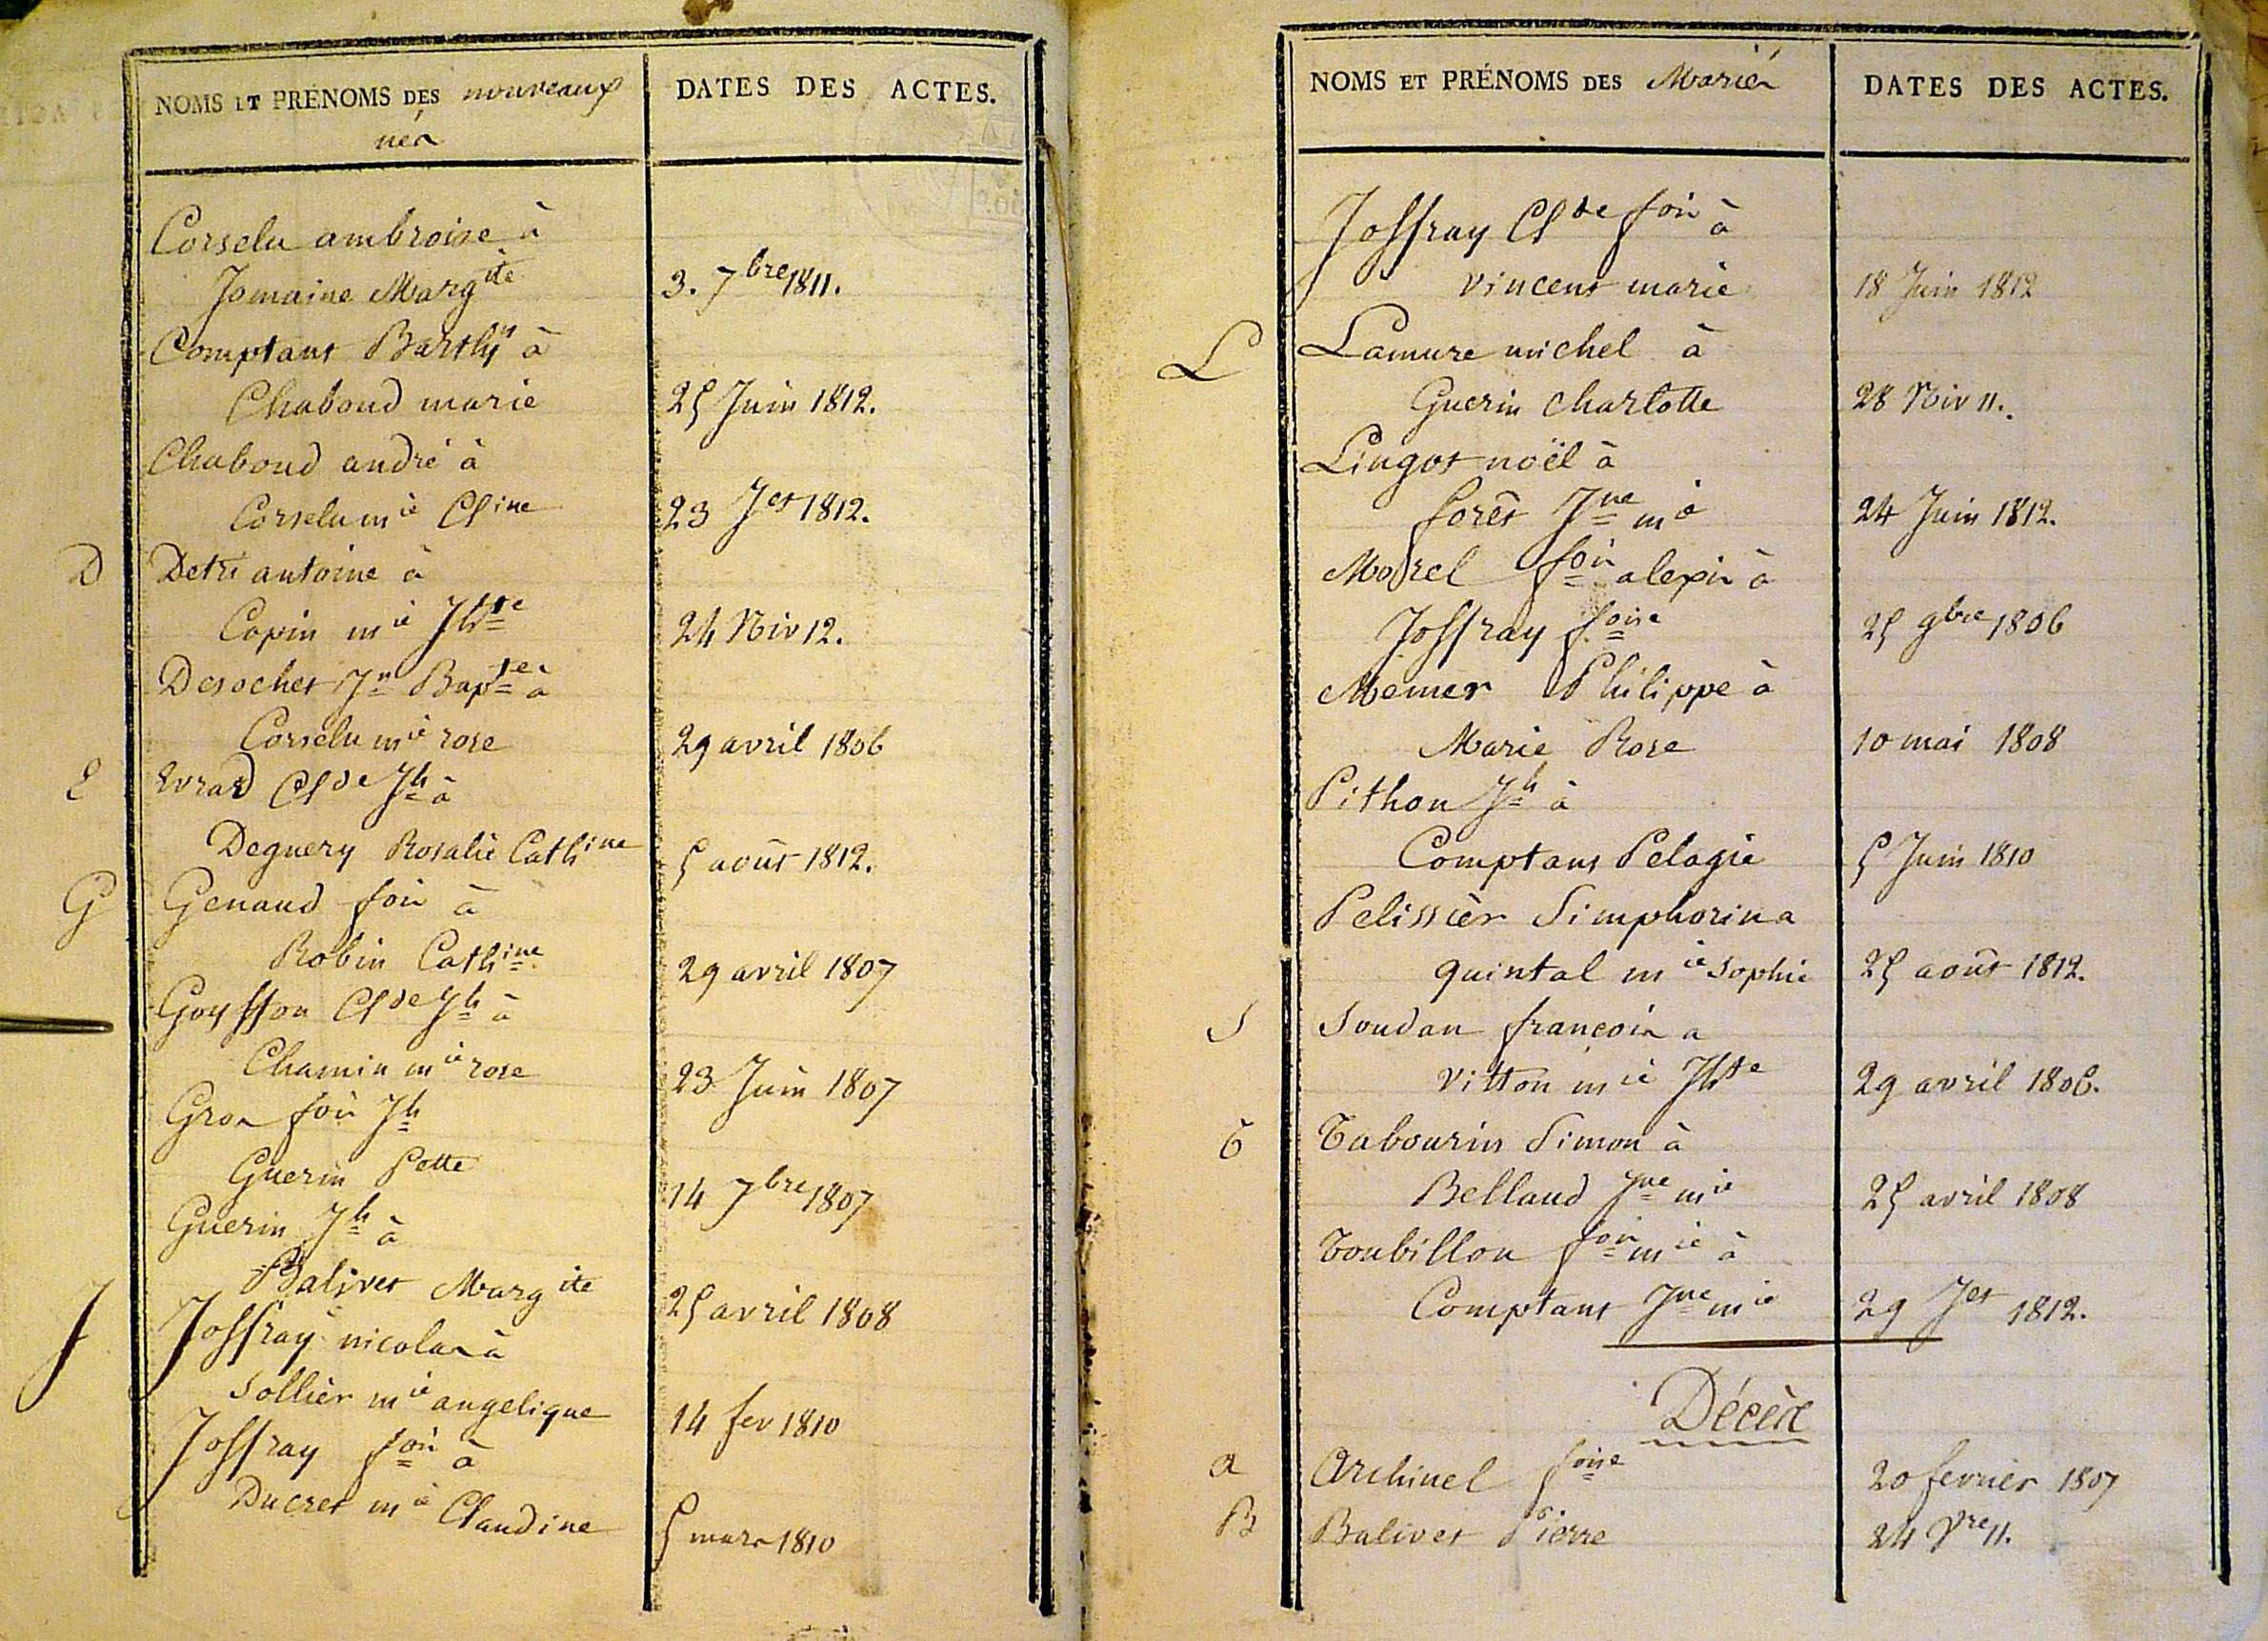 NOMS ET PRÉNOMS DES nouveaux
nés
DATES DES ACTES.
Corselu ambroise à
Jomaine Margite
3. 7bre 1811.
Comptant Barthy à
Chaboud marie
25 Juin 1812.
Chaboud andré à
Corselu mie Cline
23 Jet 1812.
D
Detri antoine à
Copin mie Jhte
24 Niv 12.
Desochet Jn Bapte à
Corselu mie rose
29 avril 1806
E
Evrard Clde Jh à
Deguery Rosalie Cathine
5 août 1812.
G
Genaud fois à
Robin Cathine
29 avril 1807
Goysson Clde Jh à
Chamin mie rose
23 Juin 1807
Gros fois Jh
Guerin Pette
14 7bre 1807
Guerin Jh à
Balivet Margite
25 avril 1808
J
Joffray nicolas à
Sollier mie angelique
14 fev 1810
Joffray fois à
Ducret mie Claudine
5 mars 1810
NOMS ET PRÉNOMS DES Mariés
DATES DES ACTES.
Joffray Clde fois à
vincent marie
18 Juin 1812
L
Lamure michel à
Guerin charlotte
28 Niv 11.
Lingot noël à
forêt Jne mie
24 Juin 1812.
Morel fois alexis à
Joffray foise
25 9bre 1806
Memer Philippe à
Marie Rose
10 mai 1808
Pithon Jh à
Comptant Pelagie
5 Juin 1810
Pelissier Simphorin a
quintal mie sophie
25 août 1812.
S
Soudan françois a
vitton mie Jhte
29 avril 1806.
T
Tabourin Simon à
Belland Jne mie
25 avril 1808
Toubillon fois mie à
Comptant Jne mie
29 Jet 1812.
Décès
a
Archinel foise
20 fevrier 1807
B
Balivet Pierre
24 Vre 11.